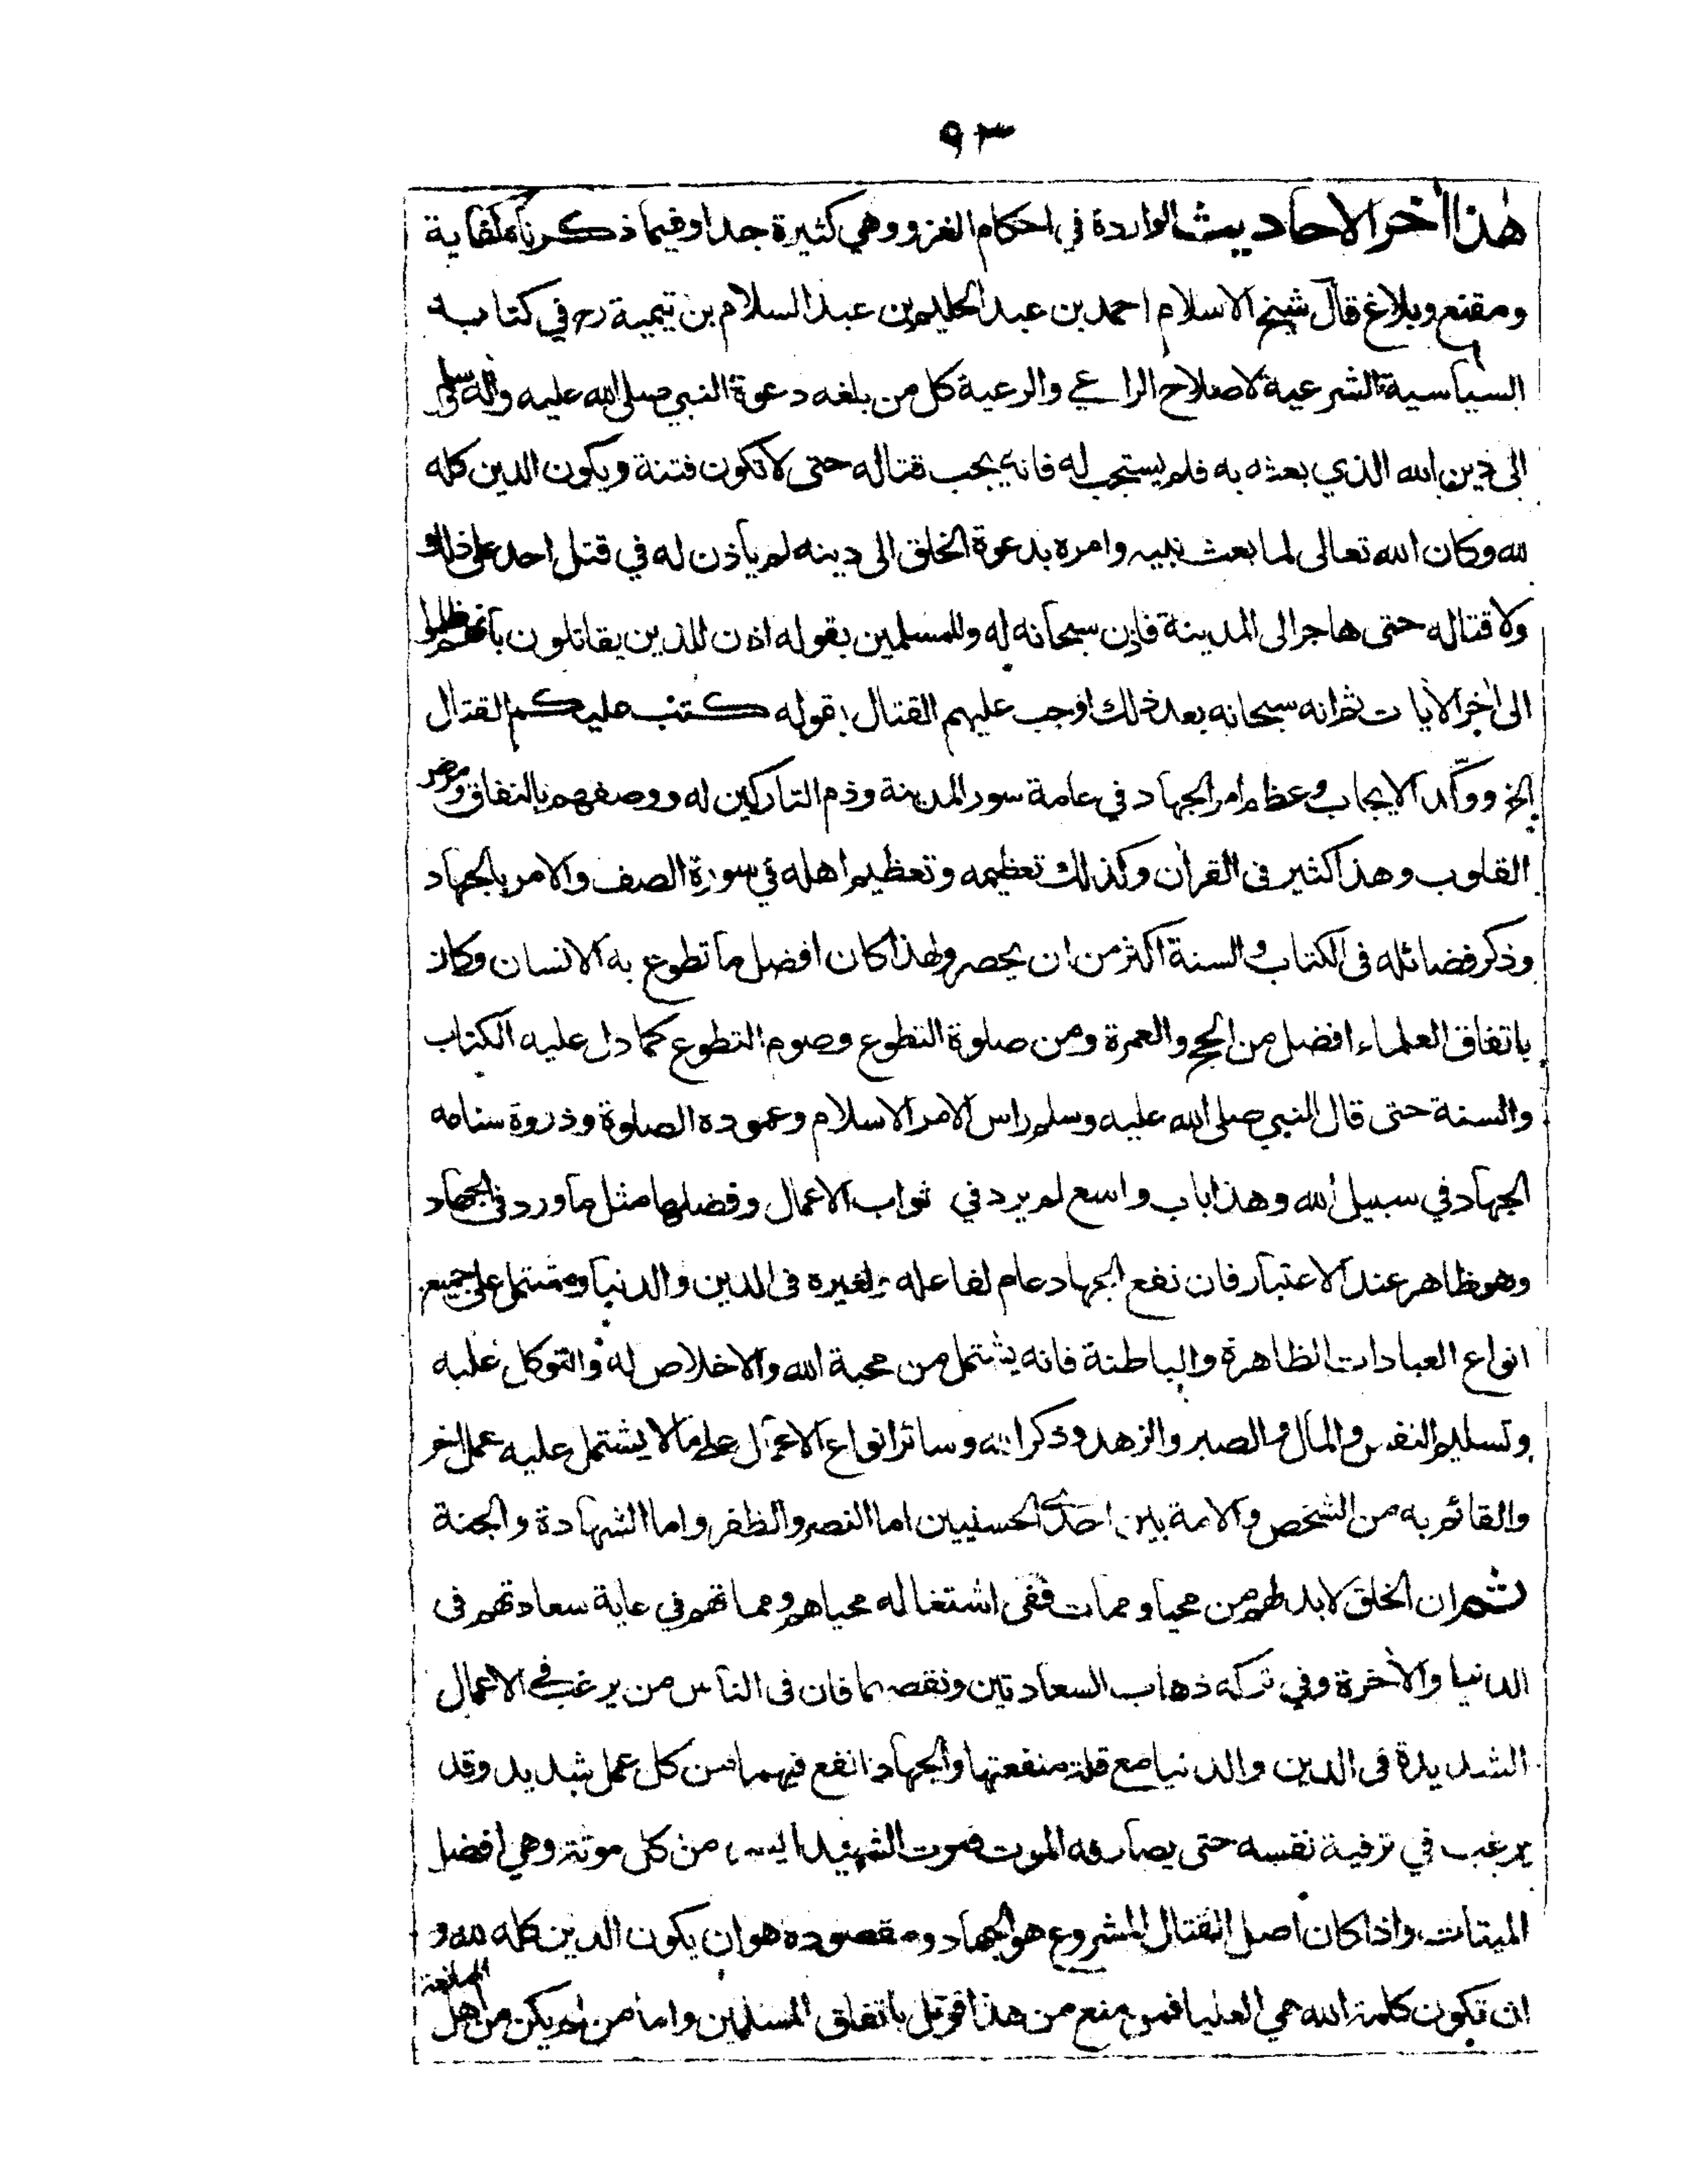 ٩٣
هٰذا اٰخر الاحاديث الواردة في احكام الغزو وهي كثيرة جدا وفيما ذكرناه كفاية
ومقنع وبلاغ قال شيخ الاسلام احمد بن عبد الحليم بن عبد السلام بن تيمية رح في كتابه
السياسية الشرعية لاصلاح الراعي والرعية كل من بلغه دعوة النبي صلى الله عليه واٰله وسلم
الى دين الله الذي بعثه به فلم يستجب له فانه يجب قتاله حتى لا تكون فتنة ويكون الدين كله
لله وكان الله تعالى لما بعث نبيه وامره بدعوة الخلق الى دينه لم يأذن له في قتل احد على ذلك
ولا قتاله حتى هاجر الى المدينة فاذن سبحانه له وللمسلمين بقوله اذن للذين يقاتلون بانهم ظلموا
الى اٰخر الاٰيات ثم انه سبحانه بعد ذلك اوجب عليهم القتال بقوله كتب عليكم القتال
الخ ووكّد الايجاب وعظم امر الجهاد في عامة سور المدينة وذم التاركين له ووصفهم بالنفاق ومرض
القلوب وهذا كثير فى القراٰن وكذلك تعظيمه وتعظيم اهله في سورة الصف والامر بالجهاد
وذكر فضائله فى الكتاب والسنة اكثر من ان يحصر ولهذا كان افضل ما تطوع به الانسان وكان
باتفاق العلماء افضل من الحج والعمرة ومن صلوة التطوع وصوم التطوع كما دل عليه الكتاب
والسنة حتى قال النبي صلى الله عليه وسلم راس الامر الاسلام وعموده الصلوة وذروة سنامه
الجهاد في سبيل الله وهذا باب واسع لم يرد في ثواب الاعمال وفضلها مثل ما ورد فى الجهاد
وهو ظاهر عند الاعتبار فان نفع الجهاد عام لفاعله ولغيره فى الدين والدنيا ومشتمل على جميع
انواع العبادات الظاهرة والباطنة فانه يشتمل من محبة الله والاخلاص له والتوكل عليه
وتسليم النفس والمال والصبر والزهد وذكر الله وسائر انواع الاعمال على ما لا يشتمل عليه عمل اٰخر
والقائم به من الشخص والامة بين احدى الحسنيين اما النصر والظفر واما الشهادة والجنة
ثم ان الخلق لا بد لهم من محيا وممات ففى اشتغاله محياهم ومماتهم في غاية سعادتهم فى
الدنيا والاٰخرة وفي تركه ذهاب السعادتين ونقصهما فان فى الناس من يرغب في الاعمال
الشديدة فى الدين والدنيا مع قلة منفعتها والجهاد انفع فيهما من كل عمل شديد وقد
يرغب في ترفية نفسه حتى يصادفه الموت فموت الشهيد ايسر من كل موتة وهي افضل
الميتات واذا كان اصل القتال المشروع هو الجهاد ومقصوده هو ان يكون الدين كله لله و
ان تكون كلمة الله هي العليا فمن منع من هذا قوتل باتفاق المسلمين واما من لم يكن من اهل
الممانعة